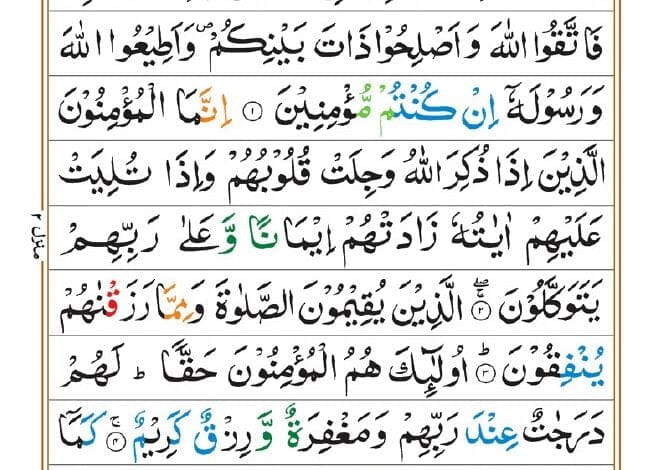 فَاتَّقُوا اللّٰهَ وَاَصْلِحُوْا ذَاتَ بَيْنِكُمْ ۪ وَاَطِيْعُوا اللّٰهَ
وَرَسُوْلَهٗۤ اِنْ كُنْتُمْ مُّؤْمِنِيْنَ ۝۱ اِنَّمَا الْمُؤْمِنُوْنَ
الَّذِيْنَ اِذَا ذُكِرَ اللّٰهُ وَجِلَتْ قُلُوْبُهُمْ وَاِذَا تُلِيَتْ
عَلَيْهِمْ اٰيٰتُهٗ زَادَتْهُمْ اِيْمَانًا وَّ عَلٰى رَبِّهِمْ
يَتَوَكَّلُوْنَ ۝۲ۚۖ الَّذِيْنَ يُقِيْمُوْنَ الصَّلٰوةَ وَمِمَّا رَزَقْنٰهُمْ
يُنْفِقُوْنَ ۝۳ؕ اُولٰٓئِكَ هُمُ الْمُؤْمِنُوْنَ حَقًّا ؕ لَهُمْ
دَرَجٰتٌ عِنْدَ رَبِّهِمْ وَمَغْفِرَةٌ وَّ رِزْقٌ كَرِيْمٌ ۝۴ۚ كَمَاۤ
منزل ۲